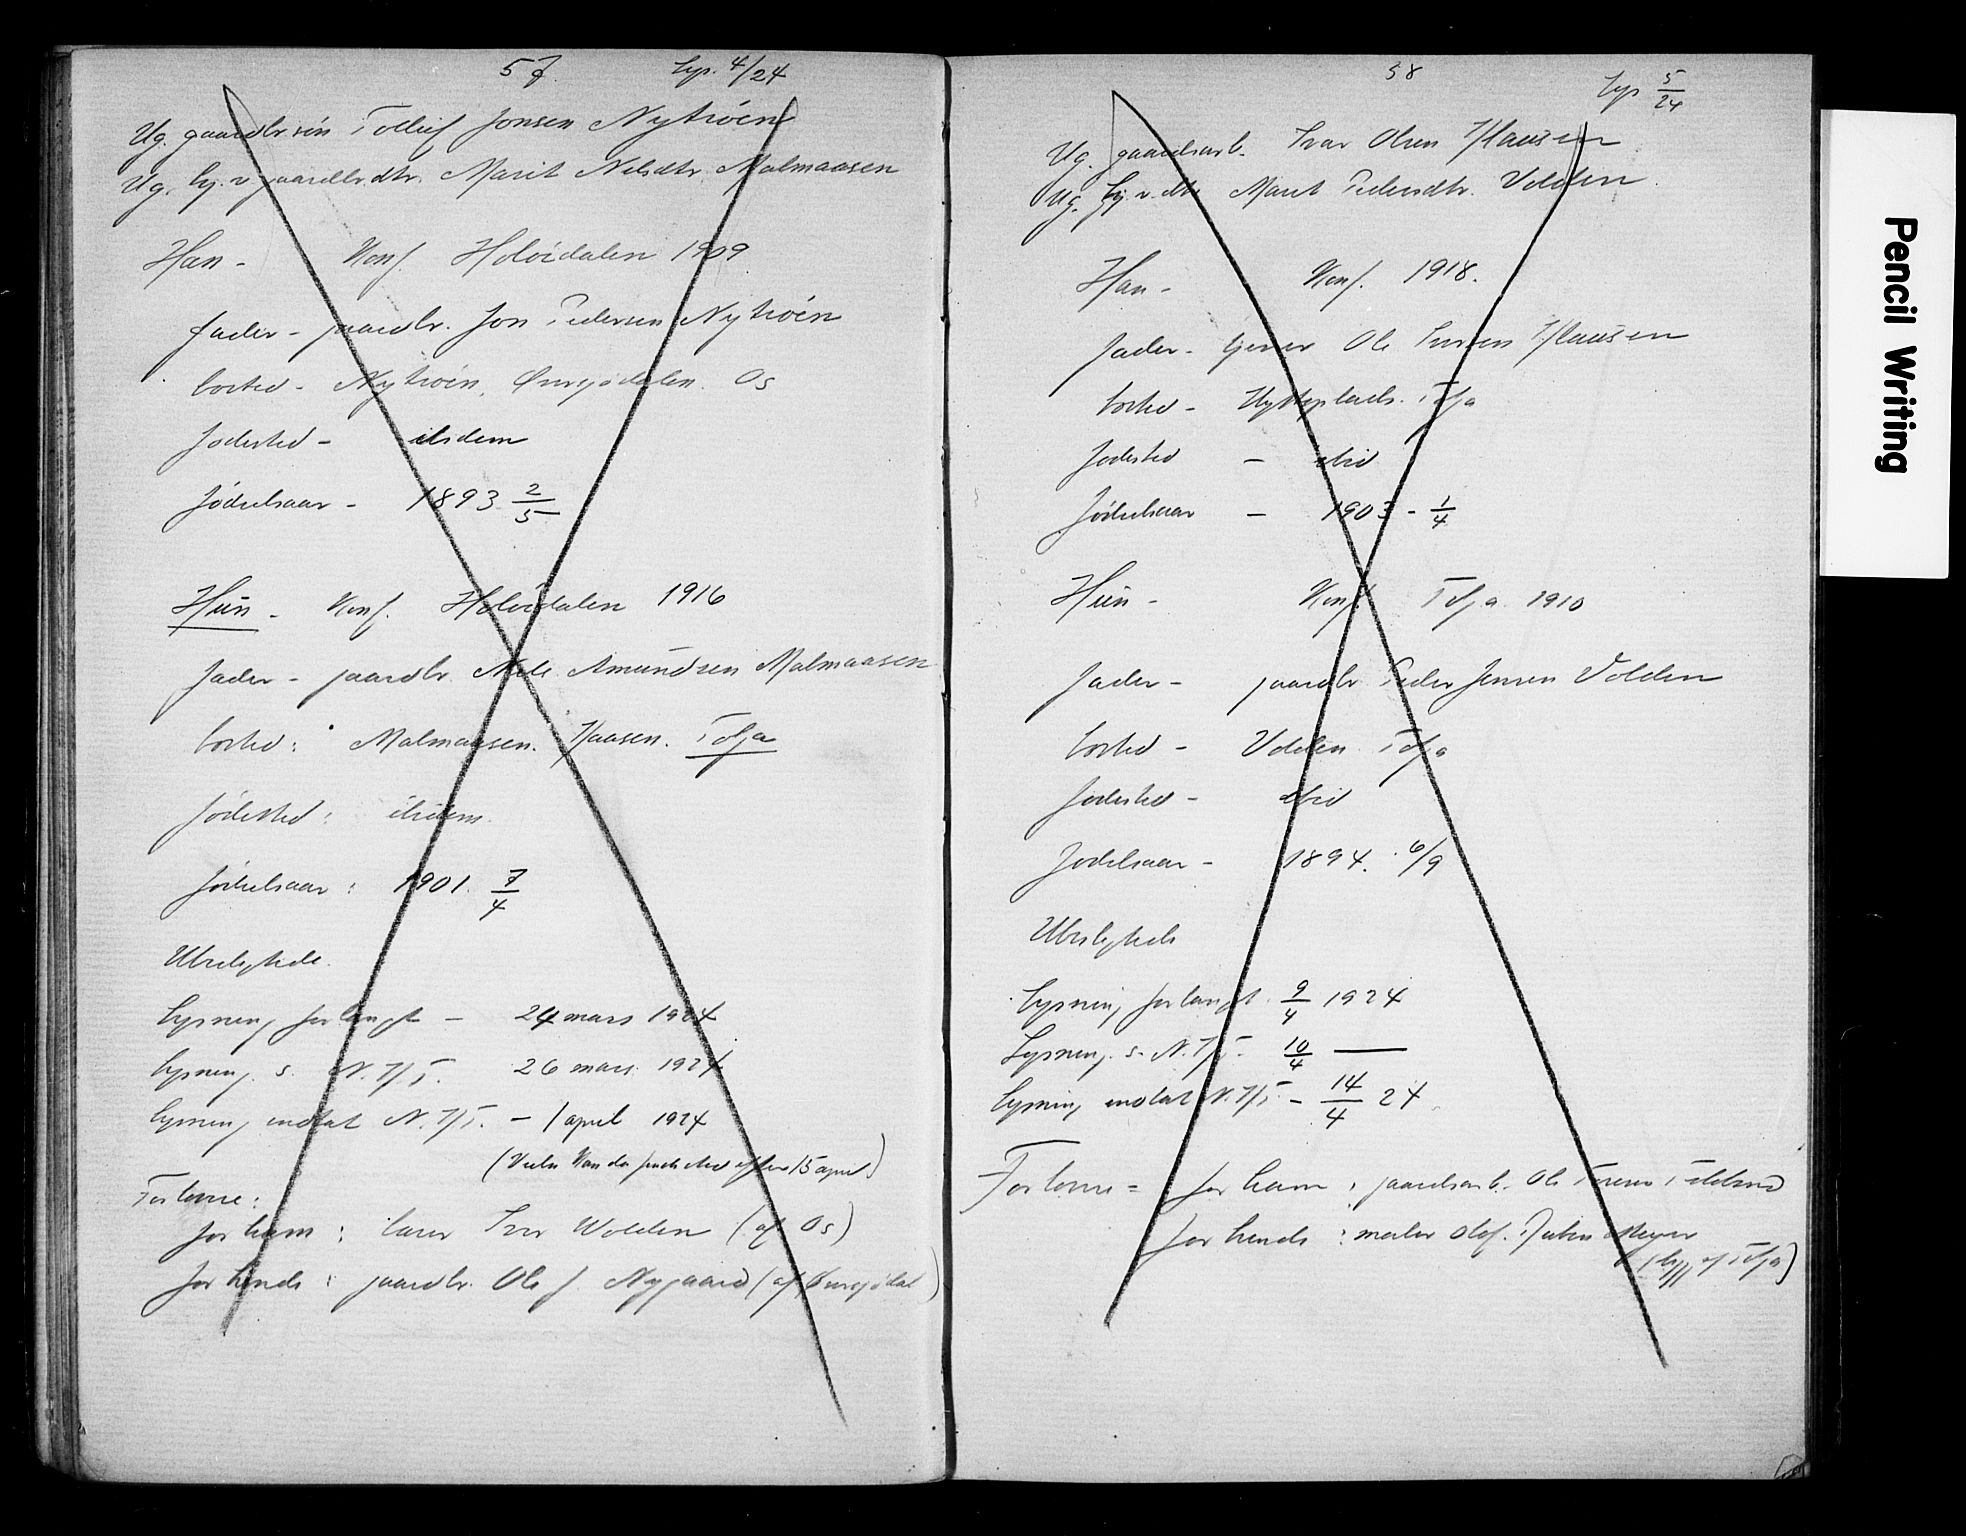 57. Lys. 4/24
Ug. gaardbr.søn Tollef Jonsen Nytrøen
Ug. hj.v. gaardbr.dtr. Marit Nilsdtr. Malmaasen
Han - Konf. Holøidalen 1909
fader - gaardbr. Jon Pedersen Nytrøen
bosted - Nytrøen, Os
fødested - ibidem
fødselsaar - 1893 2/5
Hun - Konf. Holøidalen 1916
fader - gaardbr. Nils Amundsen Malmaasen
bosted: Malmaasen. Tolga
fødested: ibidem
fødselsaar: 1901. 7/4
Ubeslægtede.
Lysning forlangt - 24 mars 1924
Lysning s. N.T. 26 mars 1924
Lysning indtat N.T. - 1 april 1924
(Vielse kan da finde sted efter 15 april)
Forlovere:
for ham: lærer Ivar Wolden (af Os)
for hende: gaardbr. Ole J. Nygaard (af
58 Lys 5/24
Ug. gaardsarb. Ivar Olsen
Ug. hj.v. dtr. Marit Pedersdtr. Volden
Han - Konf. 1918.
fader - Ole Iversen
bosted - Hytteplads. Tolga
fødested - ibid
fødselsaar - 1903 - 1/4
Hun - Konf. Tolga 1910
fader - gaardbr Peder Jensen Volden
bosted - Volden Tolga
fødested - ibid
fødselsaar - 1894. 6/9
Ubeslægtede
Lysning forlangt. 9/4 1924
Lysning. s. N.T. 10/4 —
Lysning indtat N.T. - 14/4 24
Forlovere = for ham: gaardsarb. Ole
for hende: maler Olaf Meyer
(begge af Tolga)
Pencil Writing